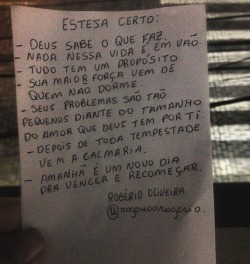 ESTEJA CERTO:
- DEUS SABE O QUE FAZ.
NADA NESSA VIDA É EM VÃO
- TUDO TEM UM PROPÓSITO
- SUA MAIOR FORÇA VEM DE
QUEM NÃO DORME.
- SEUS PROBLEMAS SÃO TÃO
PEQUENOS DIANTE DO TAMANHO
DO AMOR QUE DEUS TEM POR TI.
- DEPOIS DE TODA TEMPESTADE
VEM A CALMARIA.
- AMANHÃ É UM NOVO DIA
PRA VENCER E RECOMEÇAR.
ROGÉRIO OLIVEIRA